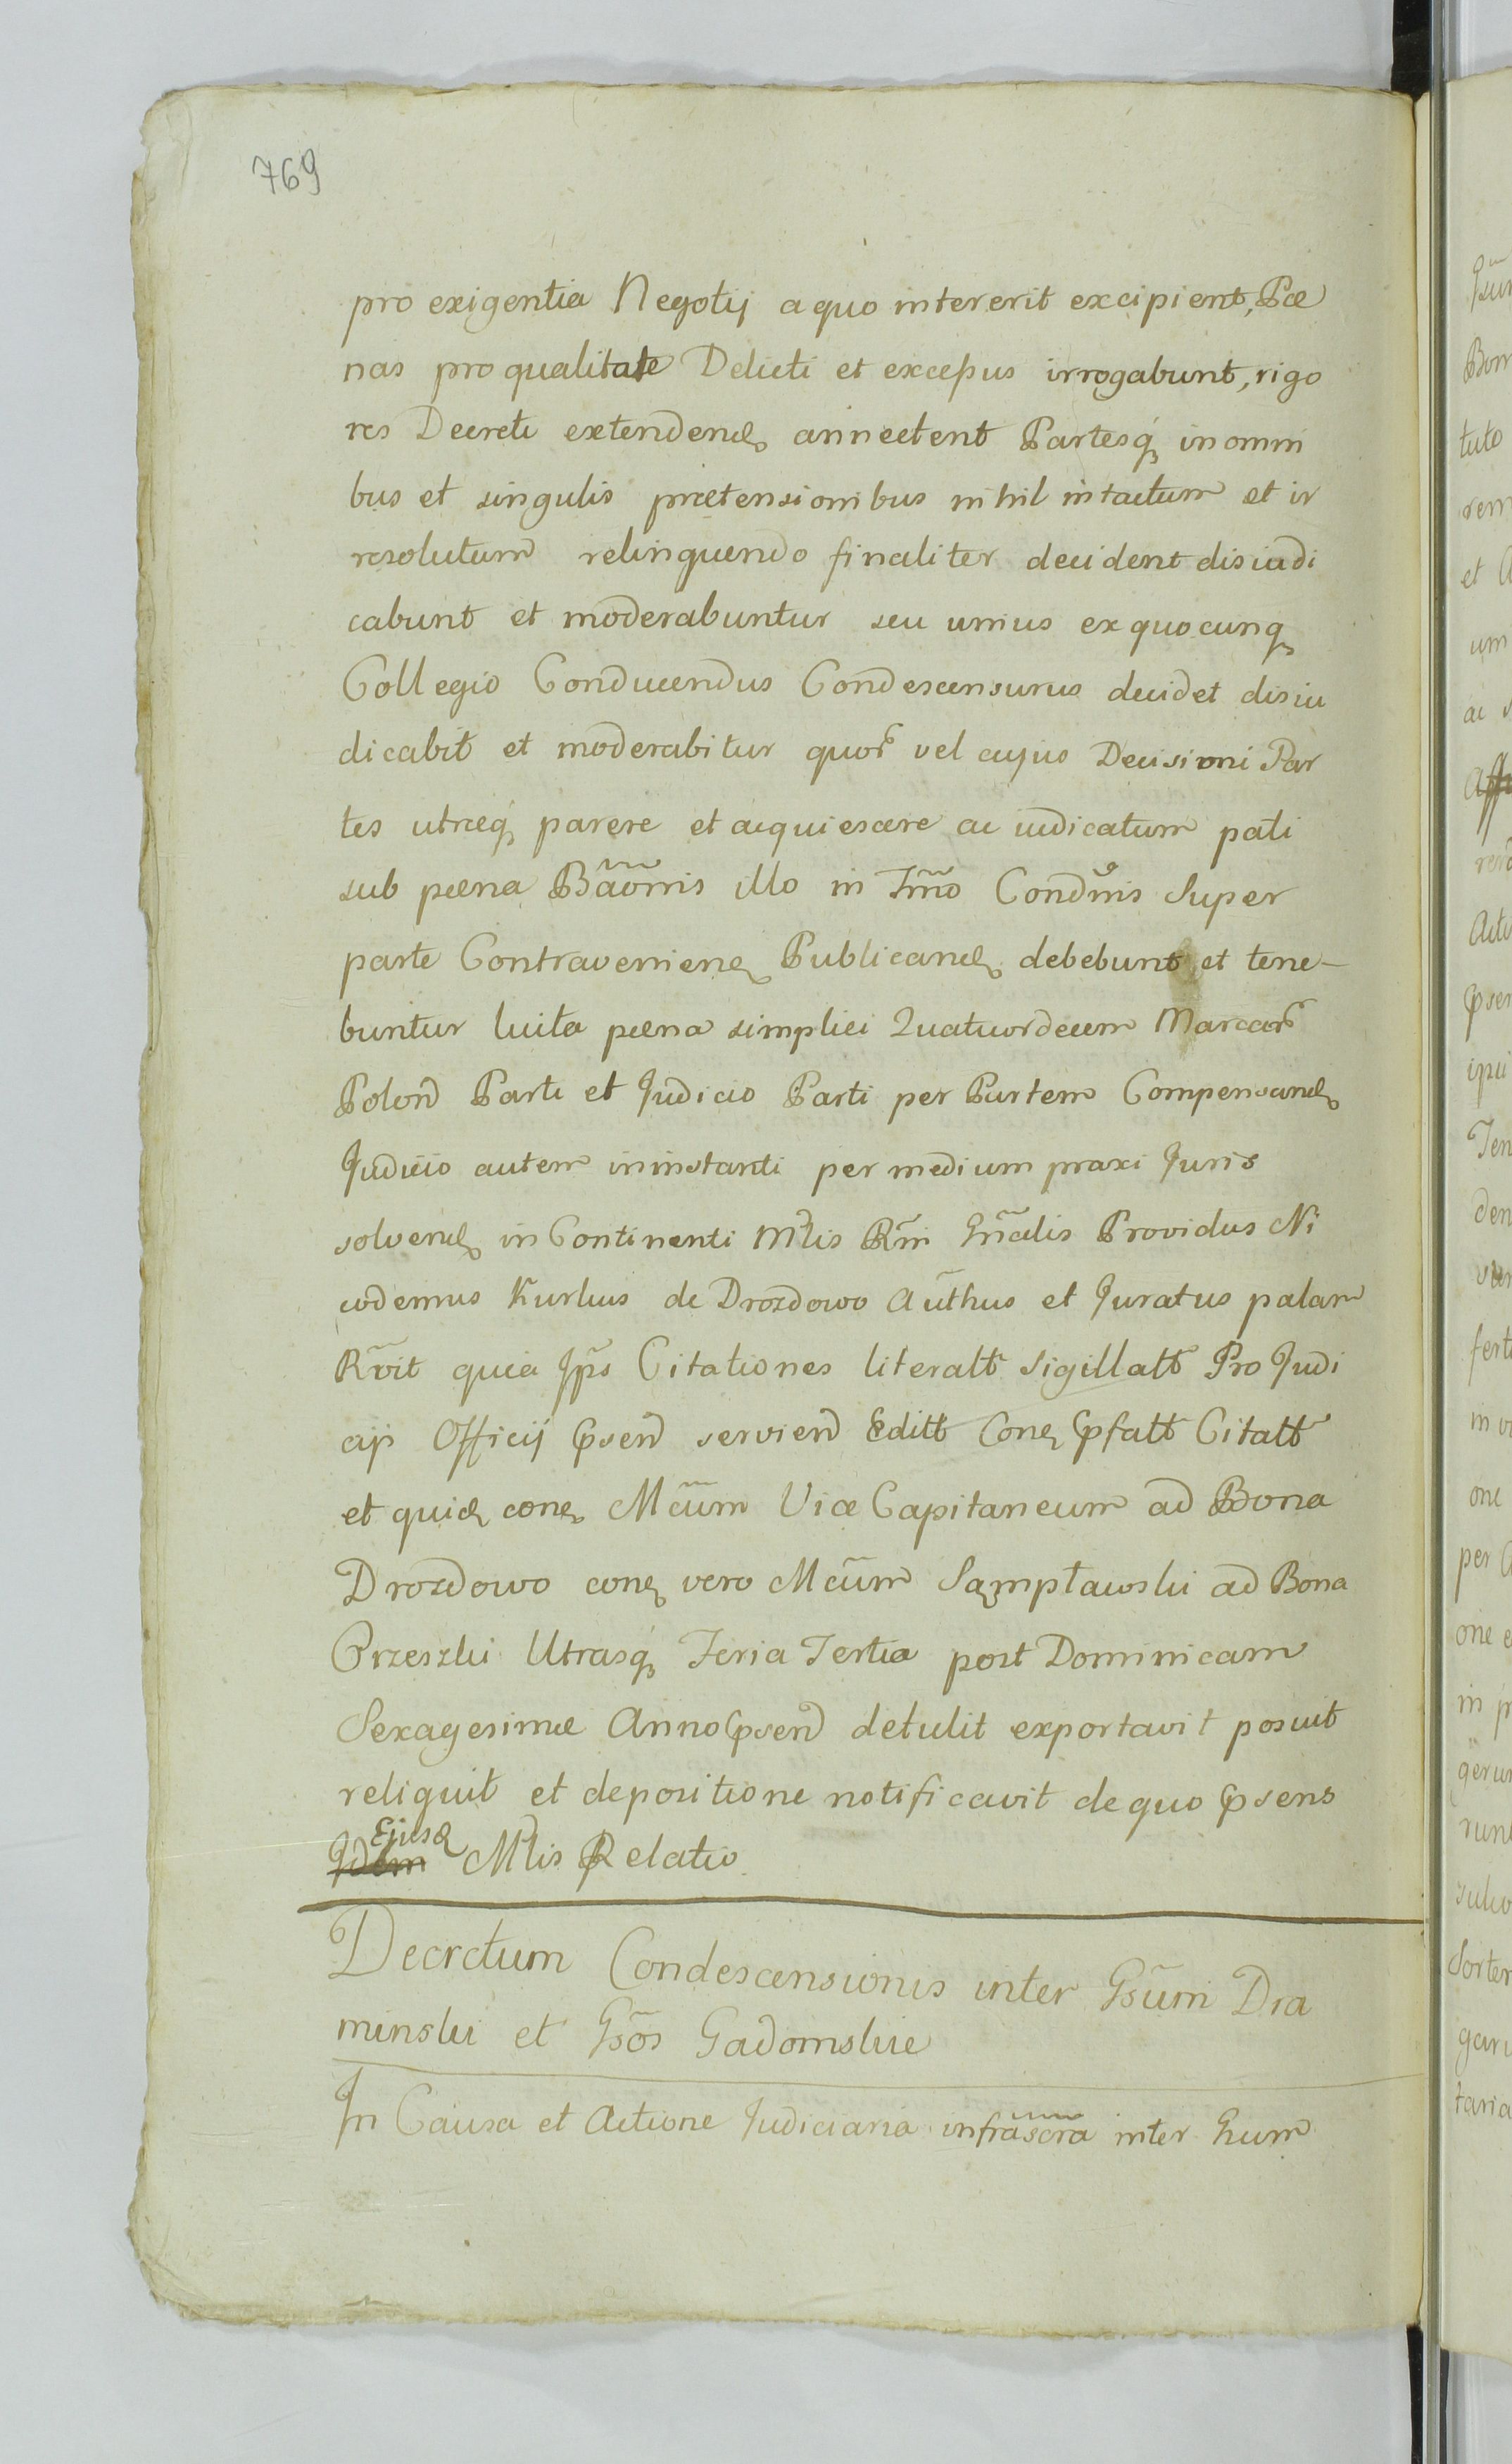 769
pro exigentia Negotij a quo intererit excipient, Pæ
nas pro qualitate Delicti et excessus irrogabunt, rigo
res Decreti extendend annectent Partesq́ in omni
bus et singulis prætensionibus nihil intactum et ir
resolutum relinquendo finaliter decident disiudi
cabunt et moderabuntur seu unius ex quocunq
Collegio Conducendus Condescensurus decidet disiu
dicabit et moderabitur quor vel cujus Decisioni Par
tes utræq́ parere et acquiescere ac iudicatum pati
sub pæna Bãonis illo in Tm̃o Condnis Super
parte Contravenien Publicand debebunt et tene-
buntur luita pæna simplici Quatuordecem Marcar
Polon Parti et Judicio Parti per Partem Compensand
Judicio autem in instanti per medium praxi Juris
solvend in Continenti Mlis Rm̃ Gn̄alis Providus Ni
codemus Kurkus de Drozdowo Aūthus et Juratus palam
Rvit quia Jps Citationes literatt sigillatt Pro Judi
cijs Officij Psen servien Editt Con Pfatt Citatt
et quid con Mcūm Vice Capitaneum ad Bona
Drozdowo con vero Mcūm Sąmpławski ad Bona
Orzeszki Utrasq́ Feria Tertia post Dominicam
Sexagesimæ Anno Psen detulit exportavit posuit
reliquit et depositione notificavit de quo Psens
Ejusd
Idem Mlis Relatio
Decretum Condescensionis inter Gsūm Dra
minski et Gsōs Gadomskie
In Causa et Actione Judiciaria infrāscra inter Gum